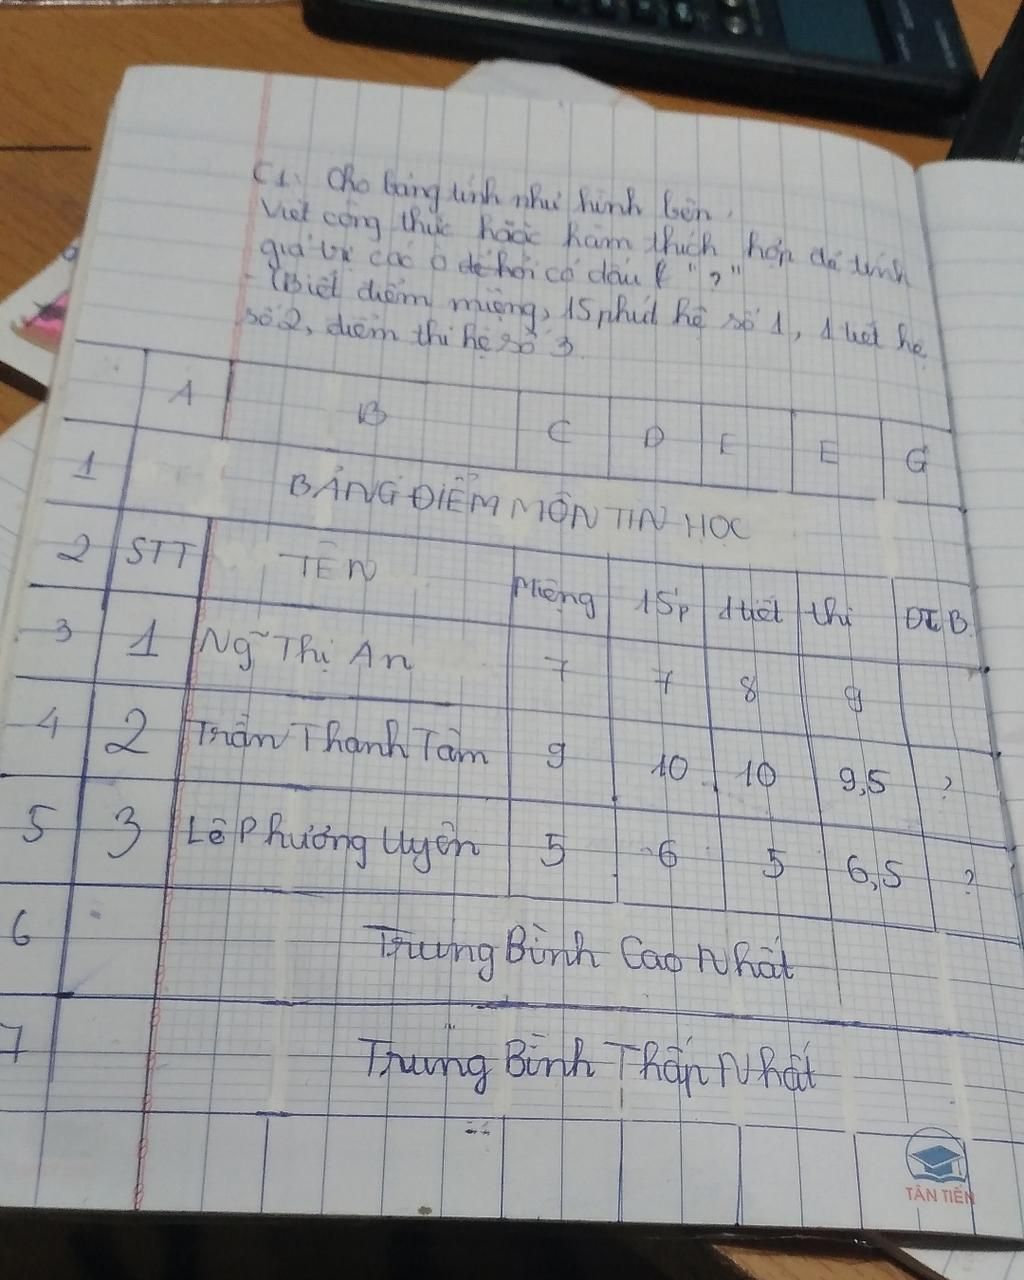 C1. Cho bảng tính như hình bên.
Viết công thức hoặc hàm thích hợp để tính
giá trị các ô để hỏi có dấu ( "?"
- (Biết điểm miệng, 15 phút hệ số 1, 1 tiết hệ
số 2, điểm thi hệ số 3
A B C D E E G
1 BẢNG ĐIỂM MÔN TIN HỌC
2 STT TÊN Miệng 15p 1 tiết thi ĐTB
3 1 Ngỹ Thị An 7 7 8 9
4 2 Trần Thanh Tâm 9 10 10 9,5 ?
5 3 Lê Phương Uyên 5 6 5 6,5 ?
6 Trung Bình Cao Nhất
7 Trung Bình Thấp Nhất
TÂN TIẾN